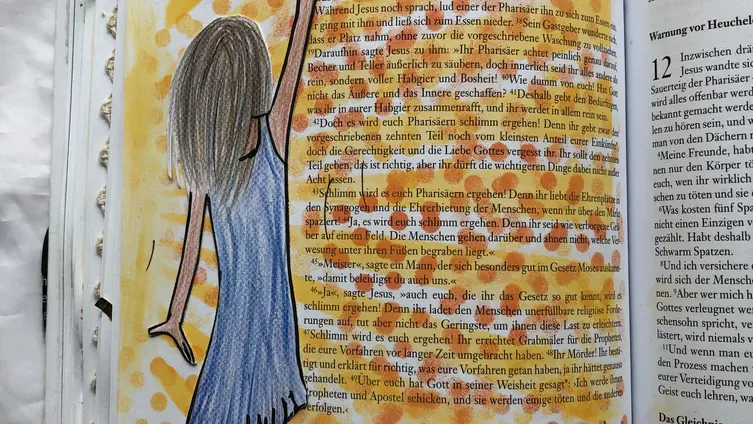 Während Jesus noch sprach, lud einer der Pharisäer ihn zu sich zum Essen ein.
ging mit ihm und ließ sich zum Essen nieder. ³⁸Sein Gastgeber wunderte sich,
dass er Platz nahm, ohne zuvor die vorgeschriebene Waschung zu vollziehen.
³⁹Daraufhin sagte Jesus zu ihm: »Ihr Pharisäer achtet peinlich genau darauf,
Becher und Teller äußerlich zu säubern, doch innerlich seid ihr alles andere als
rein, sondern voller Habgier und Bosheit! ⁴⁰Wie dumm von euch! Hat Gott
nicht das Äußere und das Innere geschaffen? ⁴¹Deshalb gebt den Bedürftigen,
was ihr in eurer Habgier zusammenrafft, und ihr werdet in allem rein sein.
⁴²Doch es wird euch Pharisäern schlimm ergehen! Denn ihr gebt zwar den
vorgeschriebenen zehnten Teil noch vom kleinsten Anteil eurer Einkünfte,
doch die Gerechtigkeit und die Liebe Gottes vergesst ihr. Ihr sollt den zehnten
Teil geben, das ist richtig, aber ihr dürft die wichtigeren Dinge dabei nicht außer
Acht lassen.
⁴³Schlimm wird es euch Pharisäern ergehen! Denn ihr liebt die Ehrenplätze in
den Synagogen und die Ehrerbietung der Menschen, wenn ihr über den Markt
spaziert! ⁴⁴Ja, es wird euch schlimm ergehen. Denn ihr seid wie verborgene Grä-
ber auf einem Feld. Die Menschen gehen darüber und ahnen nicht, welche Ver-
wesung unter ihren Füßen begraben liegt.«
⁴⁵»Meister«, sagte ein Mann, der sich besonders gut im Gesetz Moses auskann-
te, »damit beleidigst du auch uns.«
⁴⁶»Ja«, sagte Jesus, »auch euch, die ihr das Gesetz so gut kennt, wird es
schlimm ergehen! Denn ihr ladet den Menschen unerfüllbare religiöse Forde-
rungen auf, tut aber nicht das Geringste, um ihnen diese Last zu erleichtern.
⁴⁷Schlimm wird es euch ergehen! Ihr errichtet Grabmäler für die Propheten,
die eure Vorfahren vor langer Zeit umgebracht haben. ⁴⁸Ihr Mörder! Ihr bestä-
tigt und erklärt für richtig, was eure Vorfahren getan haben, ja ihr hättet genauso
gehandelt. ⁴⁹Über euch hat Gott in seiner Weisheit gesagt: ›Ich werde ihnen
Propheten und Apostel schicken, und sie werden einige töten und die anderen
verfolgen.‹
Warnung vor Heuchele
12 Inzwischen
Jesus wandte sic
Sauerteig der Pharisäer
wird alles offenbar werde
bekannt gemacht werden
len zu hören sein, und w
man von den Dächern
⁴Meine Freunde, habt
nen nur den Körper tö
euch, wen ihr wirklich
zu töten und sie
⁶Was kosten fünf Spa
nicht einen Einzigen
gezählt. Habt deshalb
Schwarm Spatzen.
⁸Und ich versichere
wird sich der Mensche
nen. ⁹Aber wer mich h
Gottes verleugnet wer
schensohn spricht,
lästert, wird niemals
¹¹Und wenn man e
den Prozess machen
eurer Verteidigung
Geist euch lehren, wa
Das Gleichnis